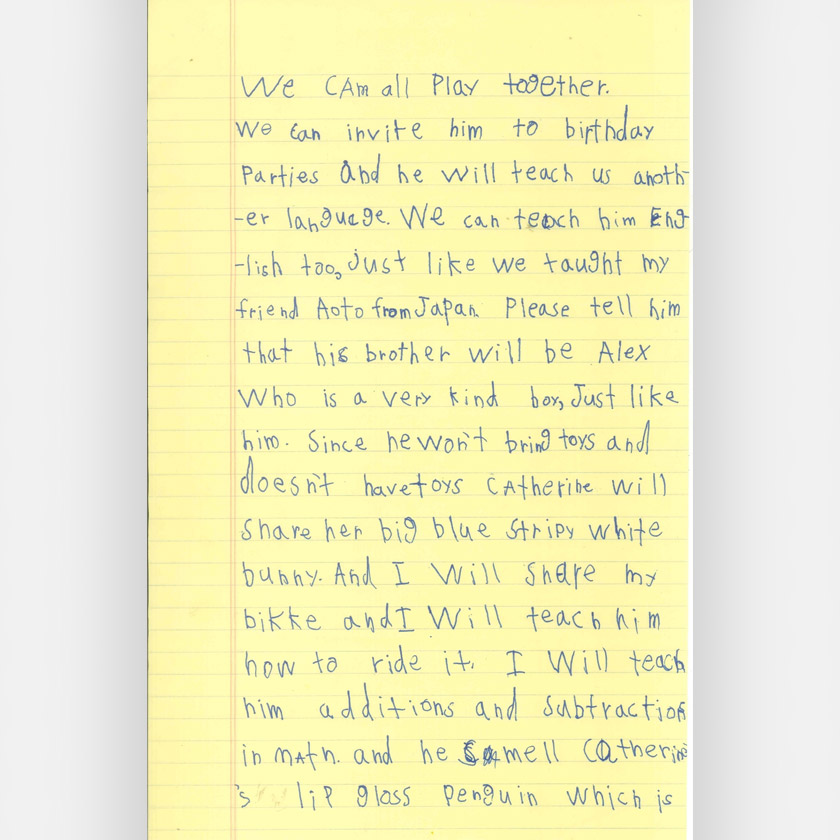 We CAm all Play togEther.
We can invite him to birthday
Parties And he will teach us anoth-
-er language. We can teach him Eng
-lish too, just like we taught my
friend Aoto from Japan. Please tell him
that his brother will be Alex
Who is a very kind boy, Just like
him. Since he won't bring toys and
doesn't have toys CAtherine will
share her big blue Stripy white
bunny. And I Will Share my
bikke and I Will teach him
how to ride it. I Will teach
him additions and subtraction
in mAth. and he smell Catherine
's lip gloss penguin which is